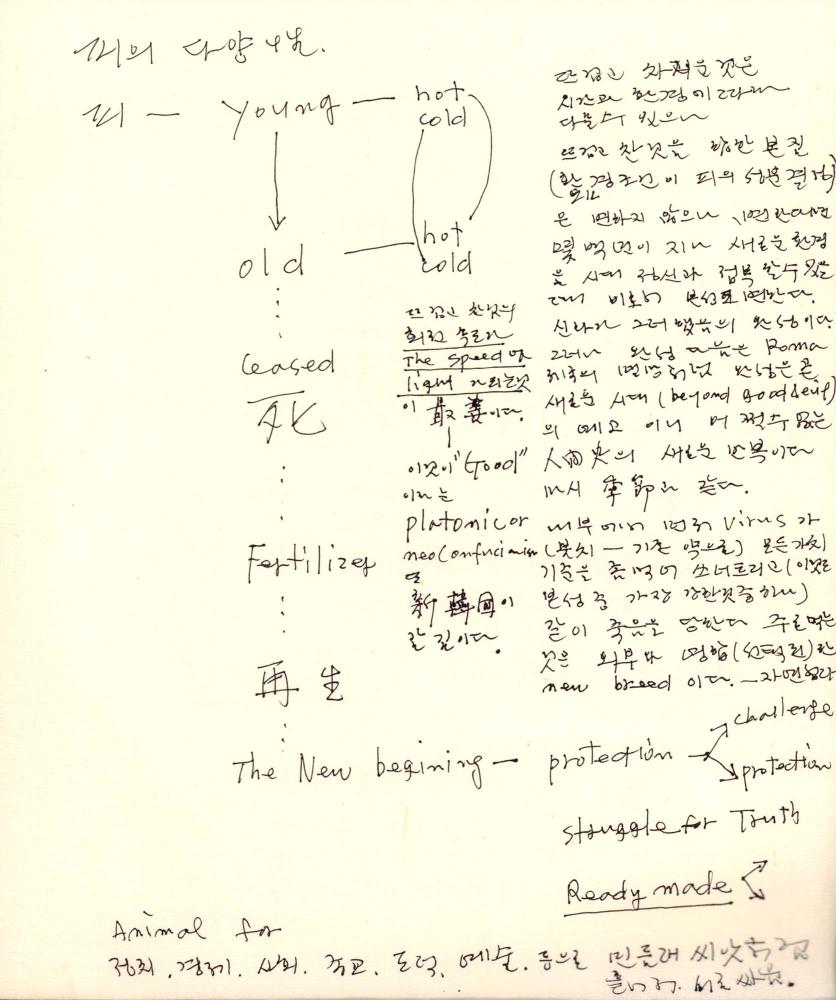 피의 다양성.
피 — young — hot
cold
old — hot
cold
ceased
死
Fertilizer
再生
The New begining — protection
challenge
protection
struggle for Truth
Ready made
뜨겁고 찬것의
회전 속도가
The speed of
light
이 最善이다.
이것이 "Good"
이라는
platonic or
neoconfucian
新 韓国이
갈 길이다.
뜨겁고 차거운 것은
시간과 환경에 따라
다를수 있으나
뜨겁고 찬것을 향한 본질
(환경조건이 피의 성분결정)
은 변하지 않으나, 변한다면
몇 백년이 지나 새로운 환경
을 시대 정신과 접목 할수 있을
때 비로서 변한다.
신라가 그러했음의 완성이다.
그러나 완성 다음은 Roma
제국의 멸망처럼 완성은 곧
새로운 시대 (beyond good & evil)
의 예고 이니 어쩔수 없는
人間史의 새로운 반복이다
마치 季節과 같다.
내부에서 먼저 virus가
모든 가치
기준을 좀먹어 쓰너트리고 (이것은
본성 중 가장 강한것중 하나)
같이 죽음을 당한다 주로 먹는
것은 외부와 영합(선택된)한
new breed 이다. — 자연
Animal for
정치. 경제. 사회. 종교. 도덕. 예술. 등으로 민들레 씨앗처럼
흩어져. 서로 싸움.